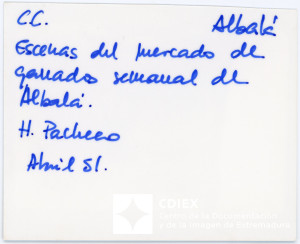 C.C. Albalá
Escenas del mercado de
ganado semanal de
Albalá.
H. Pacheco
Abril 81.
CDIEX
Centro de la Documentación
y de la Imagen de Extremadura